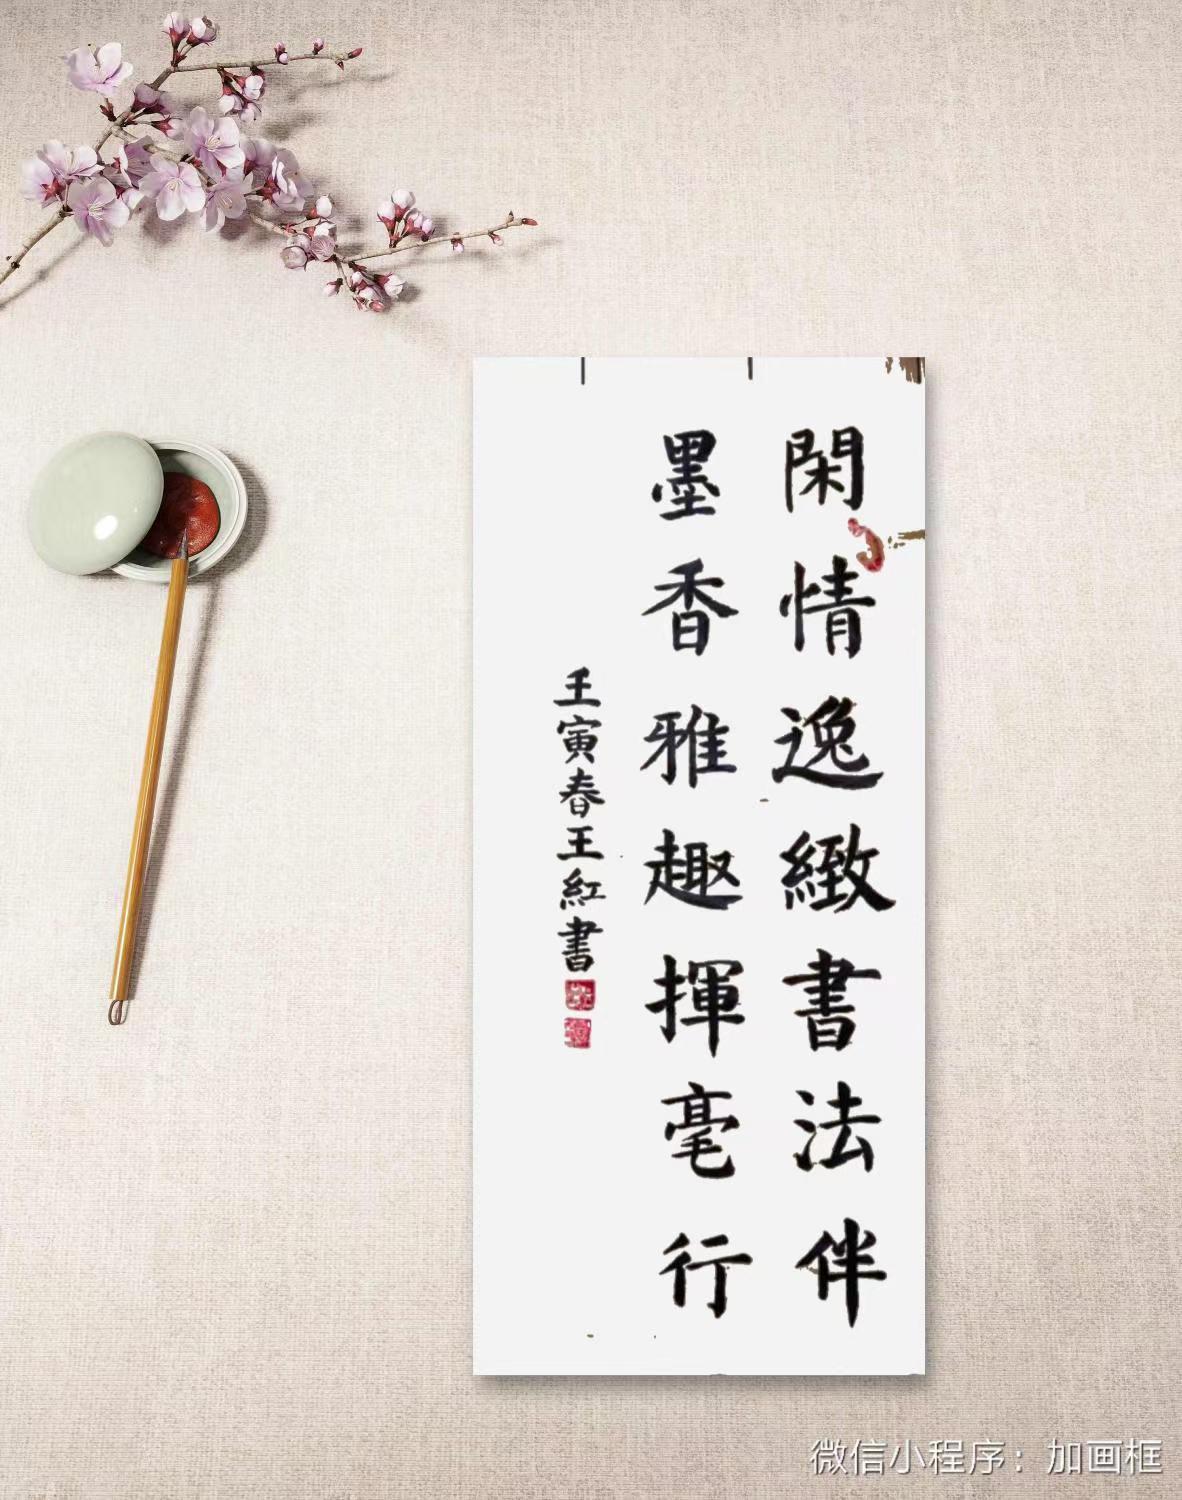 閑情逸緻書法伴
墨香雅趣揮毫行
壬寅春王紅書
微信小程序：加画框